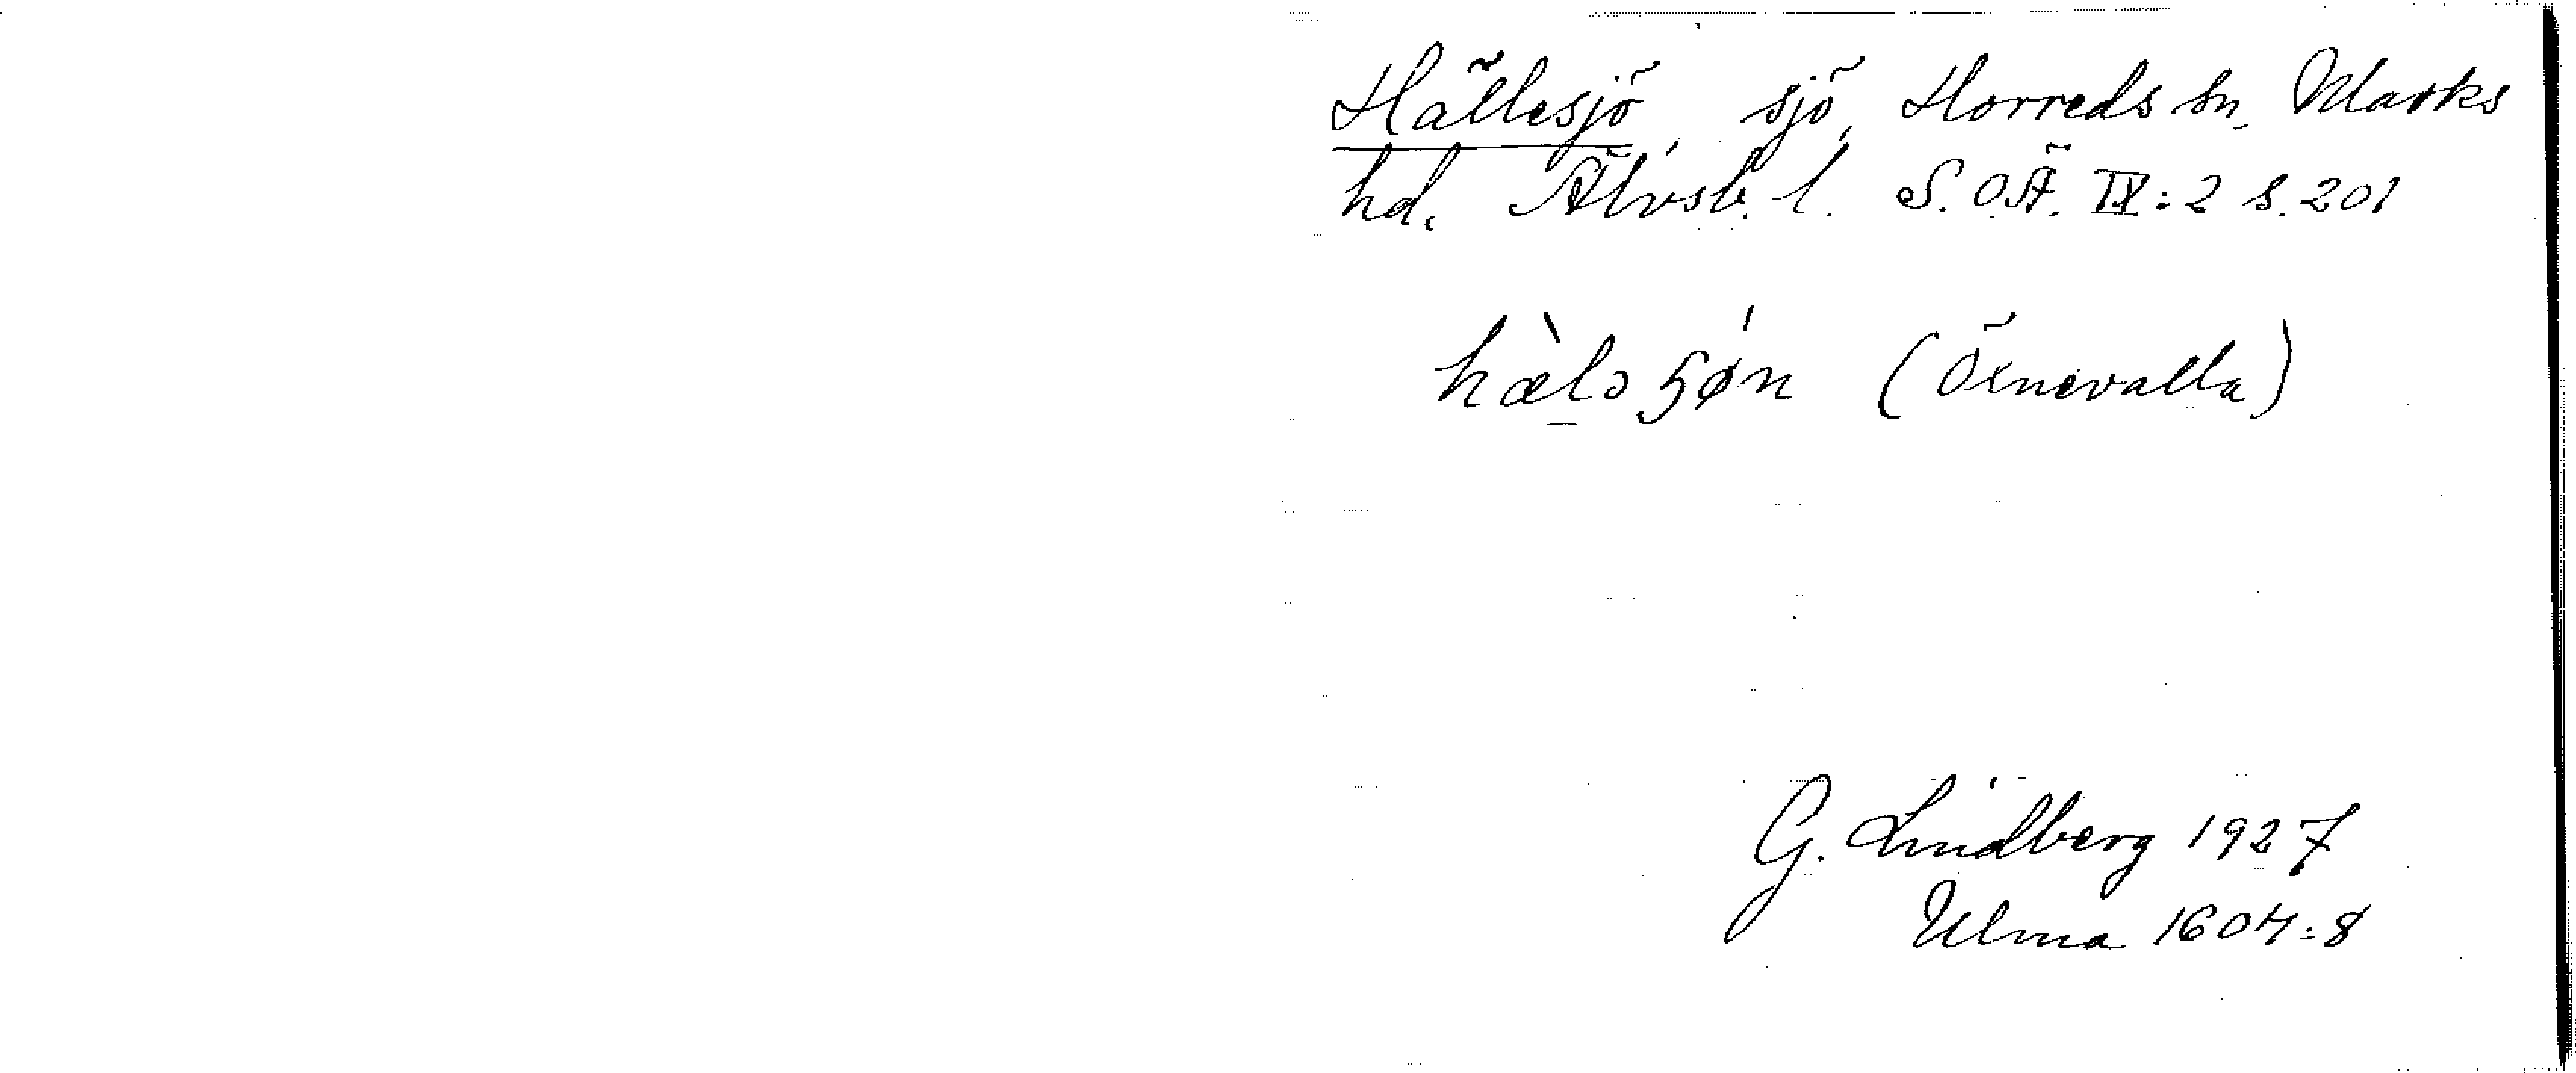 Hällesjö, sjö, Horreds sn, Marks
hd. Älvsb. l. S.O.Ä. IX:2 s. 201
hæ̀lə ɧǿn (Öxnevalla)
G. Lindberg 1927
Ulma 1604:8